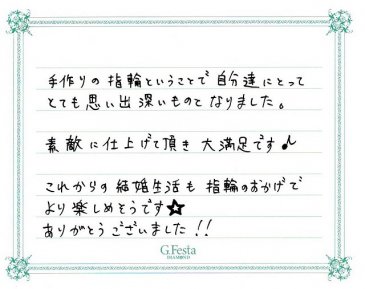 手作りの指輪ということで自分達にとって
とても思い出深いものとなりました。
素敵に仕上げて頂き大満足です♪
これからの結婚生活も指輪のおかげで
より楽しめそうです☆
ありがとうございました!!
G.Festa
DIAMOND